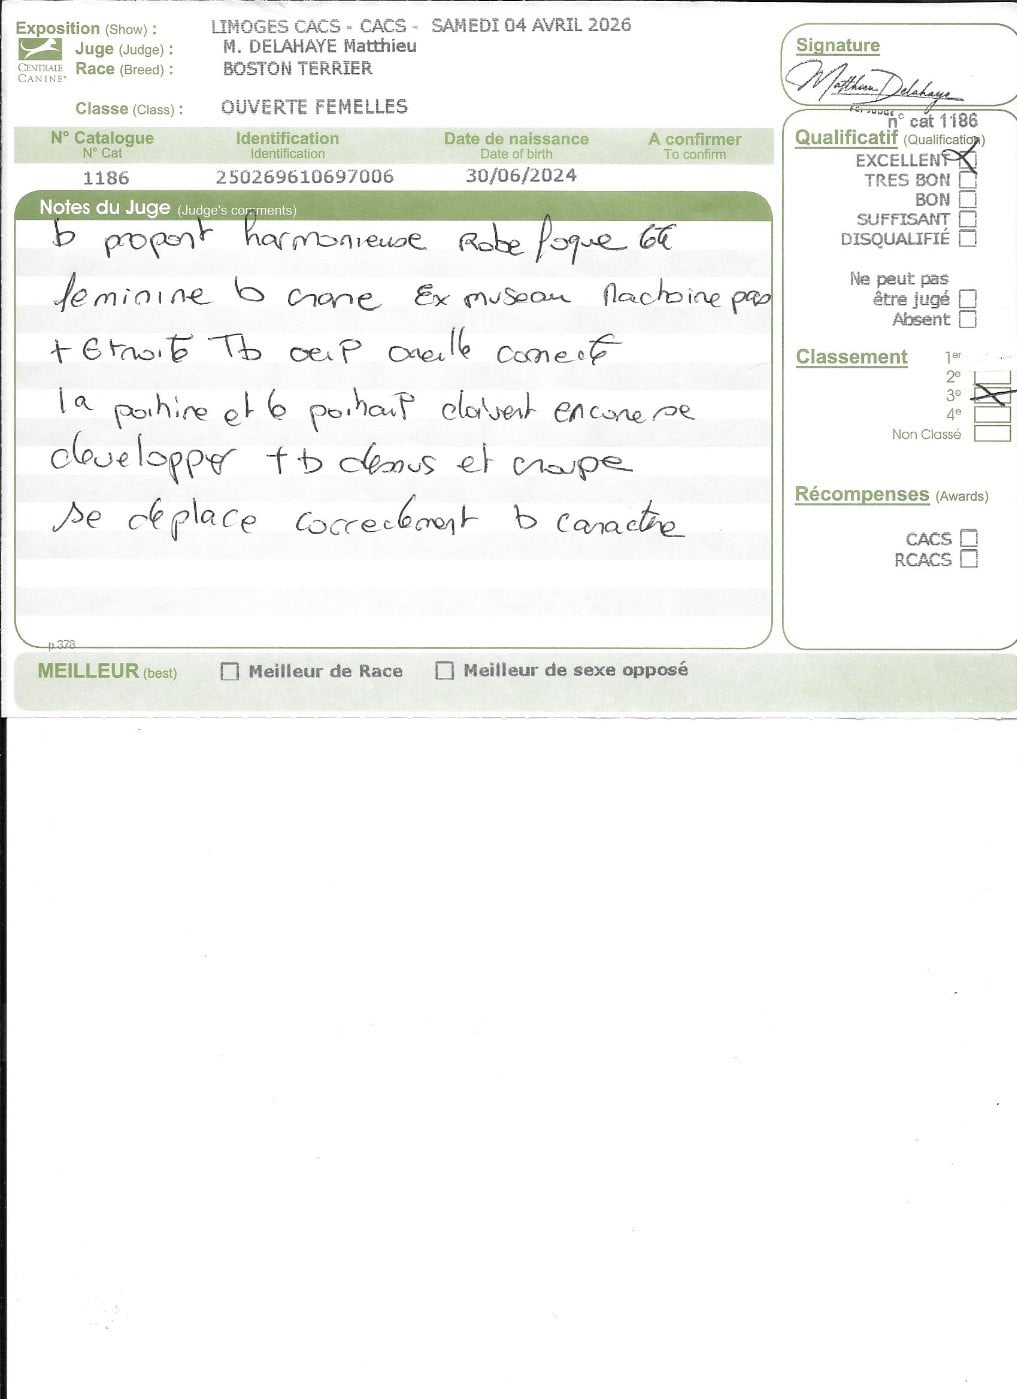 Exposition (Show) : LIMOGES CACS - CACS - SAMEDI 04 AVRIL 2026
CENTRALE CANINE
Juge (Judge) : M. DELAHAYE Matthieu
Race (Breed) : BOSTON TERRIER
Classe (Class) : OUVERTE FEMELLES
N° Catalogue Identification Date de naissance A confirmer
N° Cat Identification Date of birth To confirm
1186 250269610697006 30/06/2024
Notes du Juge (Judge's comments)
b proport harmonieuse Robe
feminine b crane Ex museau machoire pas
+ Etroite Tb oeil oreille correcte
la poitrine et le poitrail doivent encore se
developper + b dessus et croupe
se deplace correctement b caractre
p.378
MEILLEUR (best) Meilleur de Race Meilleur de sexe opposé
Signature
Matthieu Delahaye
n° cat 1186
Qualificatif (Qualification)
EXCELLENT
TRES BON
BON
SUFFISANT
DISQUALIFIÉ
Ne peut pas
être jugé
Absent
Classement 1er
2e
3e
4e
Non Classé
Récompenses (Awards)
CACS
RCACS